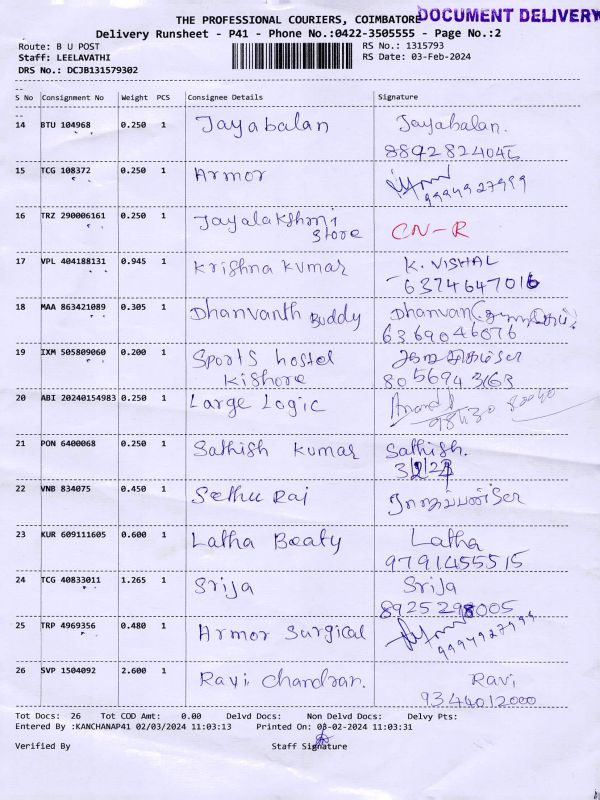 THE PROFESSIONAL COURIERS, COIMBATORE DOCUMENT DELIVERY
Delivery Runsheet - P41 - Phone No.:0422-3505555 - Page No.:2
Route: B U POST RS No.: 1315793
Staff: LEELAVATHI RS Date: 03-Feb-2024
DRS No.: DCJB131579302
S No Consignment No Weight PCS Consignee Details Signature
14 BTU 104968 0.250 1 Jayabalan Jayabalan.
15 TCG 108372 0.250 1 Armor
9994927999
16 TRZ 290006161 0.250 1 Jayalakshmi
Store CN-R
17 VPL 404188131 0.945 1 Krishna Kumar K. VISHAL
6374647016
18 MAA 863421089 0.305 1 Dhanvanth Buddy Dhanvan
6369046076
19 IXM 505809060 0.200 1 Sports hostel
Kishore 8056943163
20 ABI 20240154983 0.250 1 Large Logic Anand
21 PON 6400068 0.250 1 Sathish Kumar Sathish.
3/2/24
22 VNB 834075 0.450 1 Sethu Raj
23 KUR 609111605 0.600 1 Latha Beaty Latha
9791455515
24 TCG 40833011 1.265 1 Srija Srija
8925298005
25 TRP 4969356 0.480 1 Armor Surgical
9994927999
26 SVP 1504092 2.600 1 Ravi Chandran. Ravi
9344012000
Tot Docs: 26 Tot COD Amt: 0.00 Delvd Docs: Non Delvd Docs: Delvy Pts:
Entered By :KANCHANAP41 02/03/2024 11:03:13 Printed On: 03-02-2024 11:03:31
Verified By Staff Signature